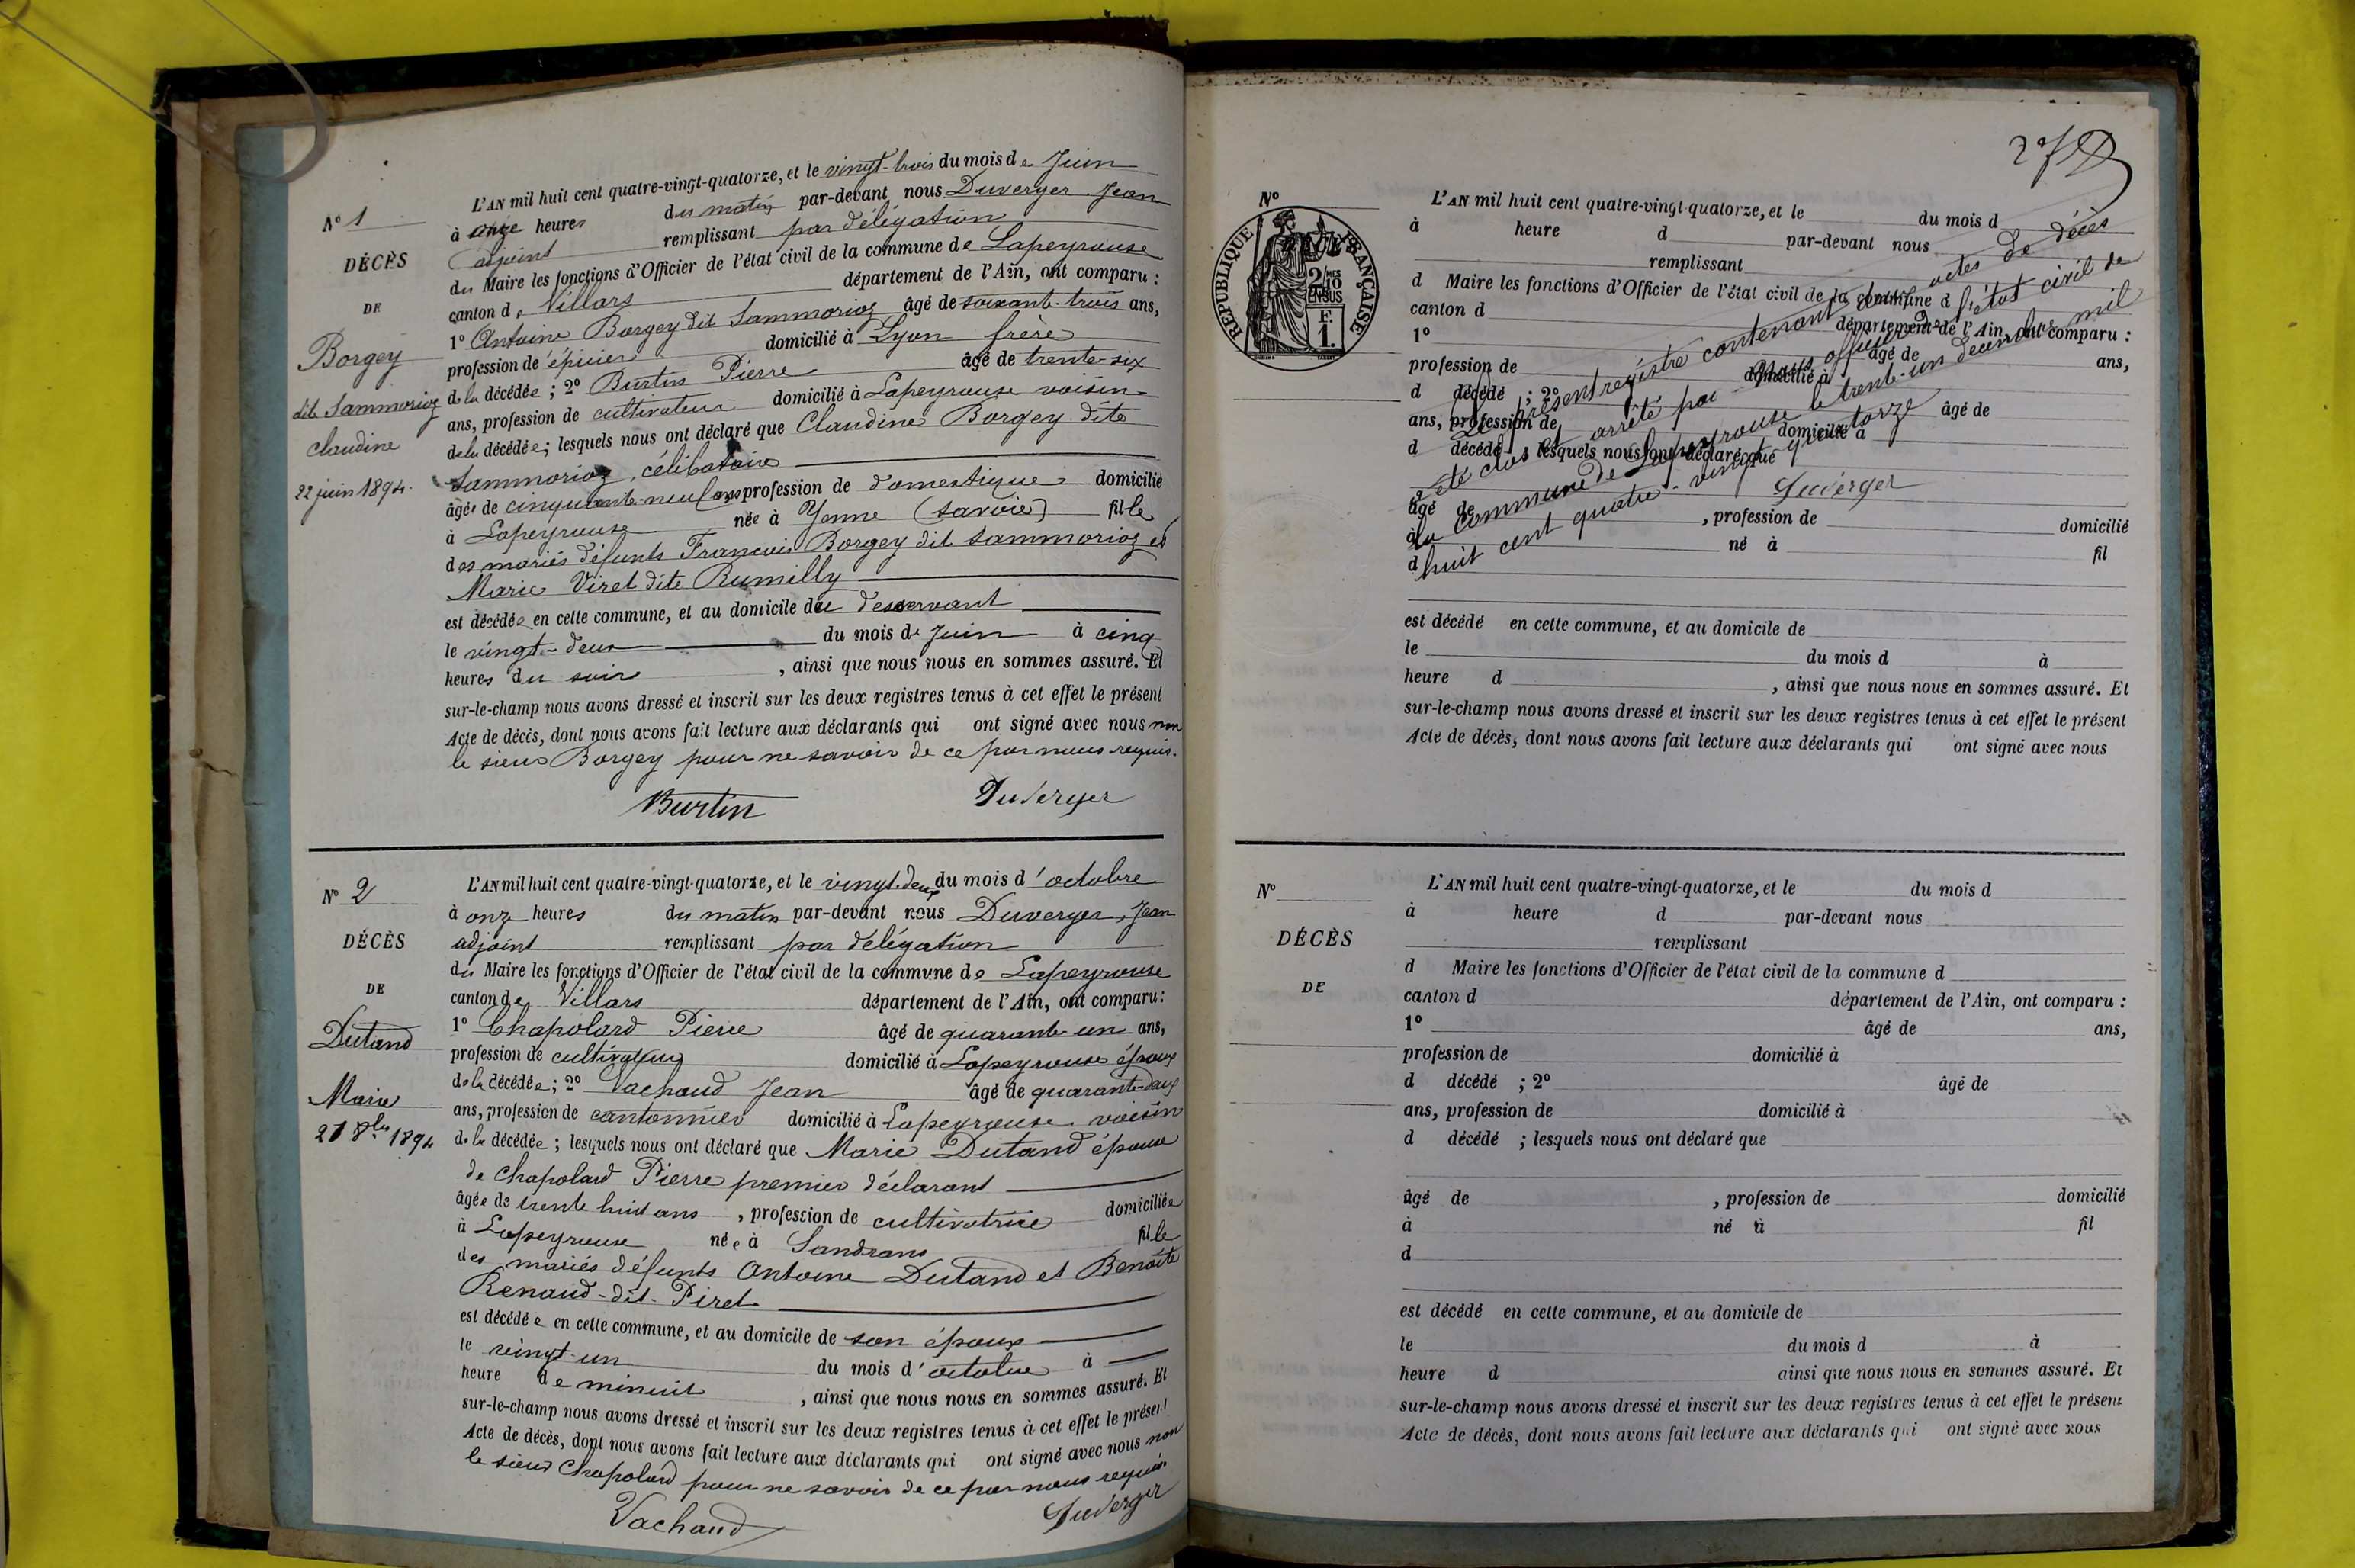 N° 1
DÉCÈS
DE
Borgey
dite Sammorioz
Claudine
22 juin 1894.
L'AN mil huit cent quatre-vingt-quatorze, et le vingt-trois du mois de Juin
à onze heures du matin par-devant nous Duverger Jean
adjoint remplissant par délégation
du Maire les fonctions d'Officier de l'état civil de la commune de Lapeyrouse
canton de Villars département de l'Ain, ont comparu :
1° Antoine Borgey dit Sammorioz âgé de soixante-trois ans,
profession de épicier domicilié à Lyon frère
de la décédée ; 2° Burtin Pierre âgé de trente-six
ans, profession de cultivateur domicilié à Lapeyrouse voisin
de la décédée ; lesquels nous ont déclaré que Claudine Borgey dite
Sammorioz, célibataire
âgée de cinquante-neuf ans profession de domestique domicilié
à Lapeyrouse née à Yenne (Savoie) fille
des mariés défunts Francois Borgey dit Sammorioz et
Marie Viret dite Rumilly
est décédée en cette commune, et au domicile du desservant
le vingt-deux du mois de Juin à cinq
heures du soir , ainsi que nous nous en sommes assuré. Et
sur-le-champ nous avons dressé et inscrit sur les deux registres tenus à cet effet le présent
Acte de décès, dont nous avons fait lecture aux déclarants qui ont signé avec nous non
le sieur Borgey pour ne savoir de ce par nous requis.
Burtin Duverger
N° 2
DÉCÈS
DE
Dutand
Marie
21 8bre 1894
L'AN mil huit cent quatre-vingt-quatorze, et le vingt-deux du mois d'octobre
à onze heures du matin par-devant nous Duverger, Jean
adjoint remplissant par délégation
du Maire les fonctions d'Officier de l'état civil de la commune de Lapeyrouse
canton de Villars département de l'Ain, ont comparu :
1° Chapolard Pierre âgé de quarante-un ans,
profession de cultivateur domicilié à Lapeyrouse époux
de la décédée ; 2° Vachaud Jean âgé de quarante-deux
ans, profession de cantonnier domicilié à Lapeyrouse voisin
de la décédée ; lesquels nous ont déclaré que Marie Dutand épouse
de Chapolard Pierre premier déclarant
âgée de trente huit ans , profession de cultivatrice domiciliée
à Lapeyrouse née à Sandrans fille
des mariés défunts Antoine Dutand et Benoîte
Renaud-dit-Piret
est décédée en cette commune, et au domicile de son époux
le vingt-un du mois d'octobre à
heure de minuit , ainsi que nous nous en sommes assuré. Et
sur-le-champ nous avons dressé et inscrit sur les deux registres tenus à cet effet le présent
Acte de décès, dont nous avons fait lecture aux déclarants qui ont signé avec nous non
le sieur Chapolard pour ne savoir de ce par nous requis
Vachaud Duverger
N°
RÉPUBLIQUE FRANÇAISE
L'AN mil huit cent quatre-vingt-quatorze, et le du mois d
à heure d par-devant nous
remplissant
d Maire les fonctions d'Officier de l'état civil de la commune d
canton d département de l'Ain, ont comparu :
1° âgé de ans,
profession de domicilié à
d décédé ; 2° âgé de
ans, profession de domicilié à
d décédé ; lesquels nous ont déclaré que
âgé de , profession de domicilié
à né à fil
d
Le présent registre contenant deux actes de décès
a été clos et arrêté par nous officier de l'état civil de
la commune de Lapeyrouse le trente-un décembre mil
huit cent quatre-vingt quatorze
Duverger
est décédé en cette commune, et au domicile de
le du mois d à
heure d , ainsi que nous nous en sommes assuré. Et
sur-le-champ nous avons dressé et inscrit sur les deux registres tenus à cet effet le présent
Acte de décès, dont nous avons fait lecture aux déclarants qui ont signé avec nous
N°
DÉCÈS
DE
L'AN mil huit cent quatre-vingt-quatorze, et le du mois d
à heure d par-devant nous
remplissant
d Maire les fonctions d'Officier de l'état civil de la commune d
canton d département de l'Ain, ont comparu :
1° âgé de ans,
profession de domicilié à
d décédé ; 2° âgé de
ans, profession de domicilié à
d décédé ; lesquels nous ont déclaré que
âgé de , profession de domicilié
à né à fil
d
est décédé en cette commune, et au domicile de
le du mois d à
heure d ainsi que nous nous en sommes assuré. Et
sur-le-champ nous avons dressé et inscrit sur les deux registres tenus à cet effet le présent
Acte de décès, dont nous avons fait lecture aux déclarants qui ont signé avec nous